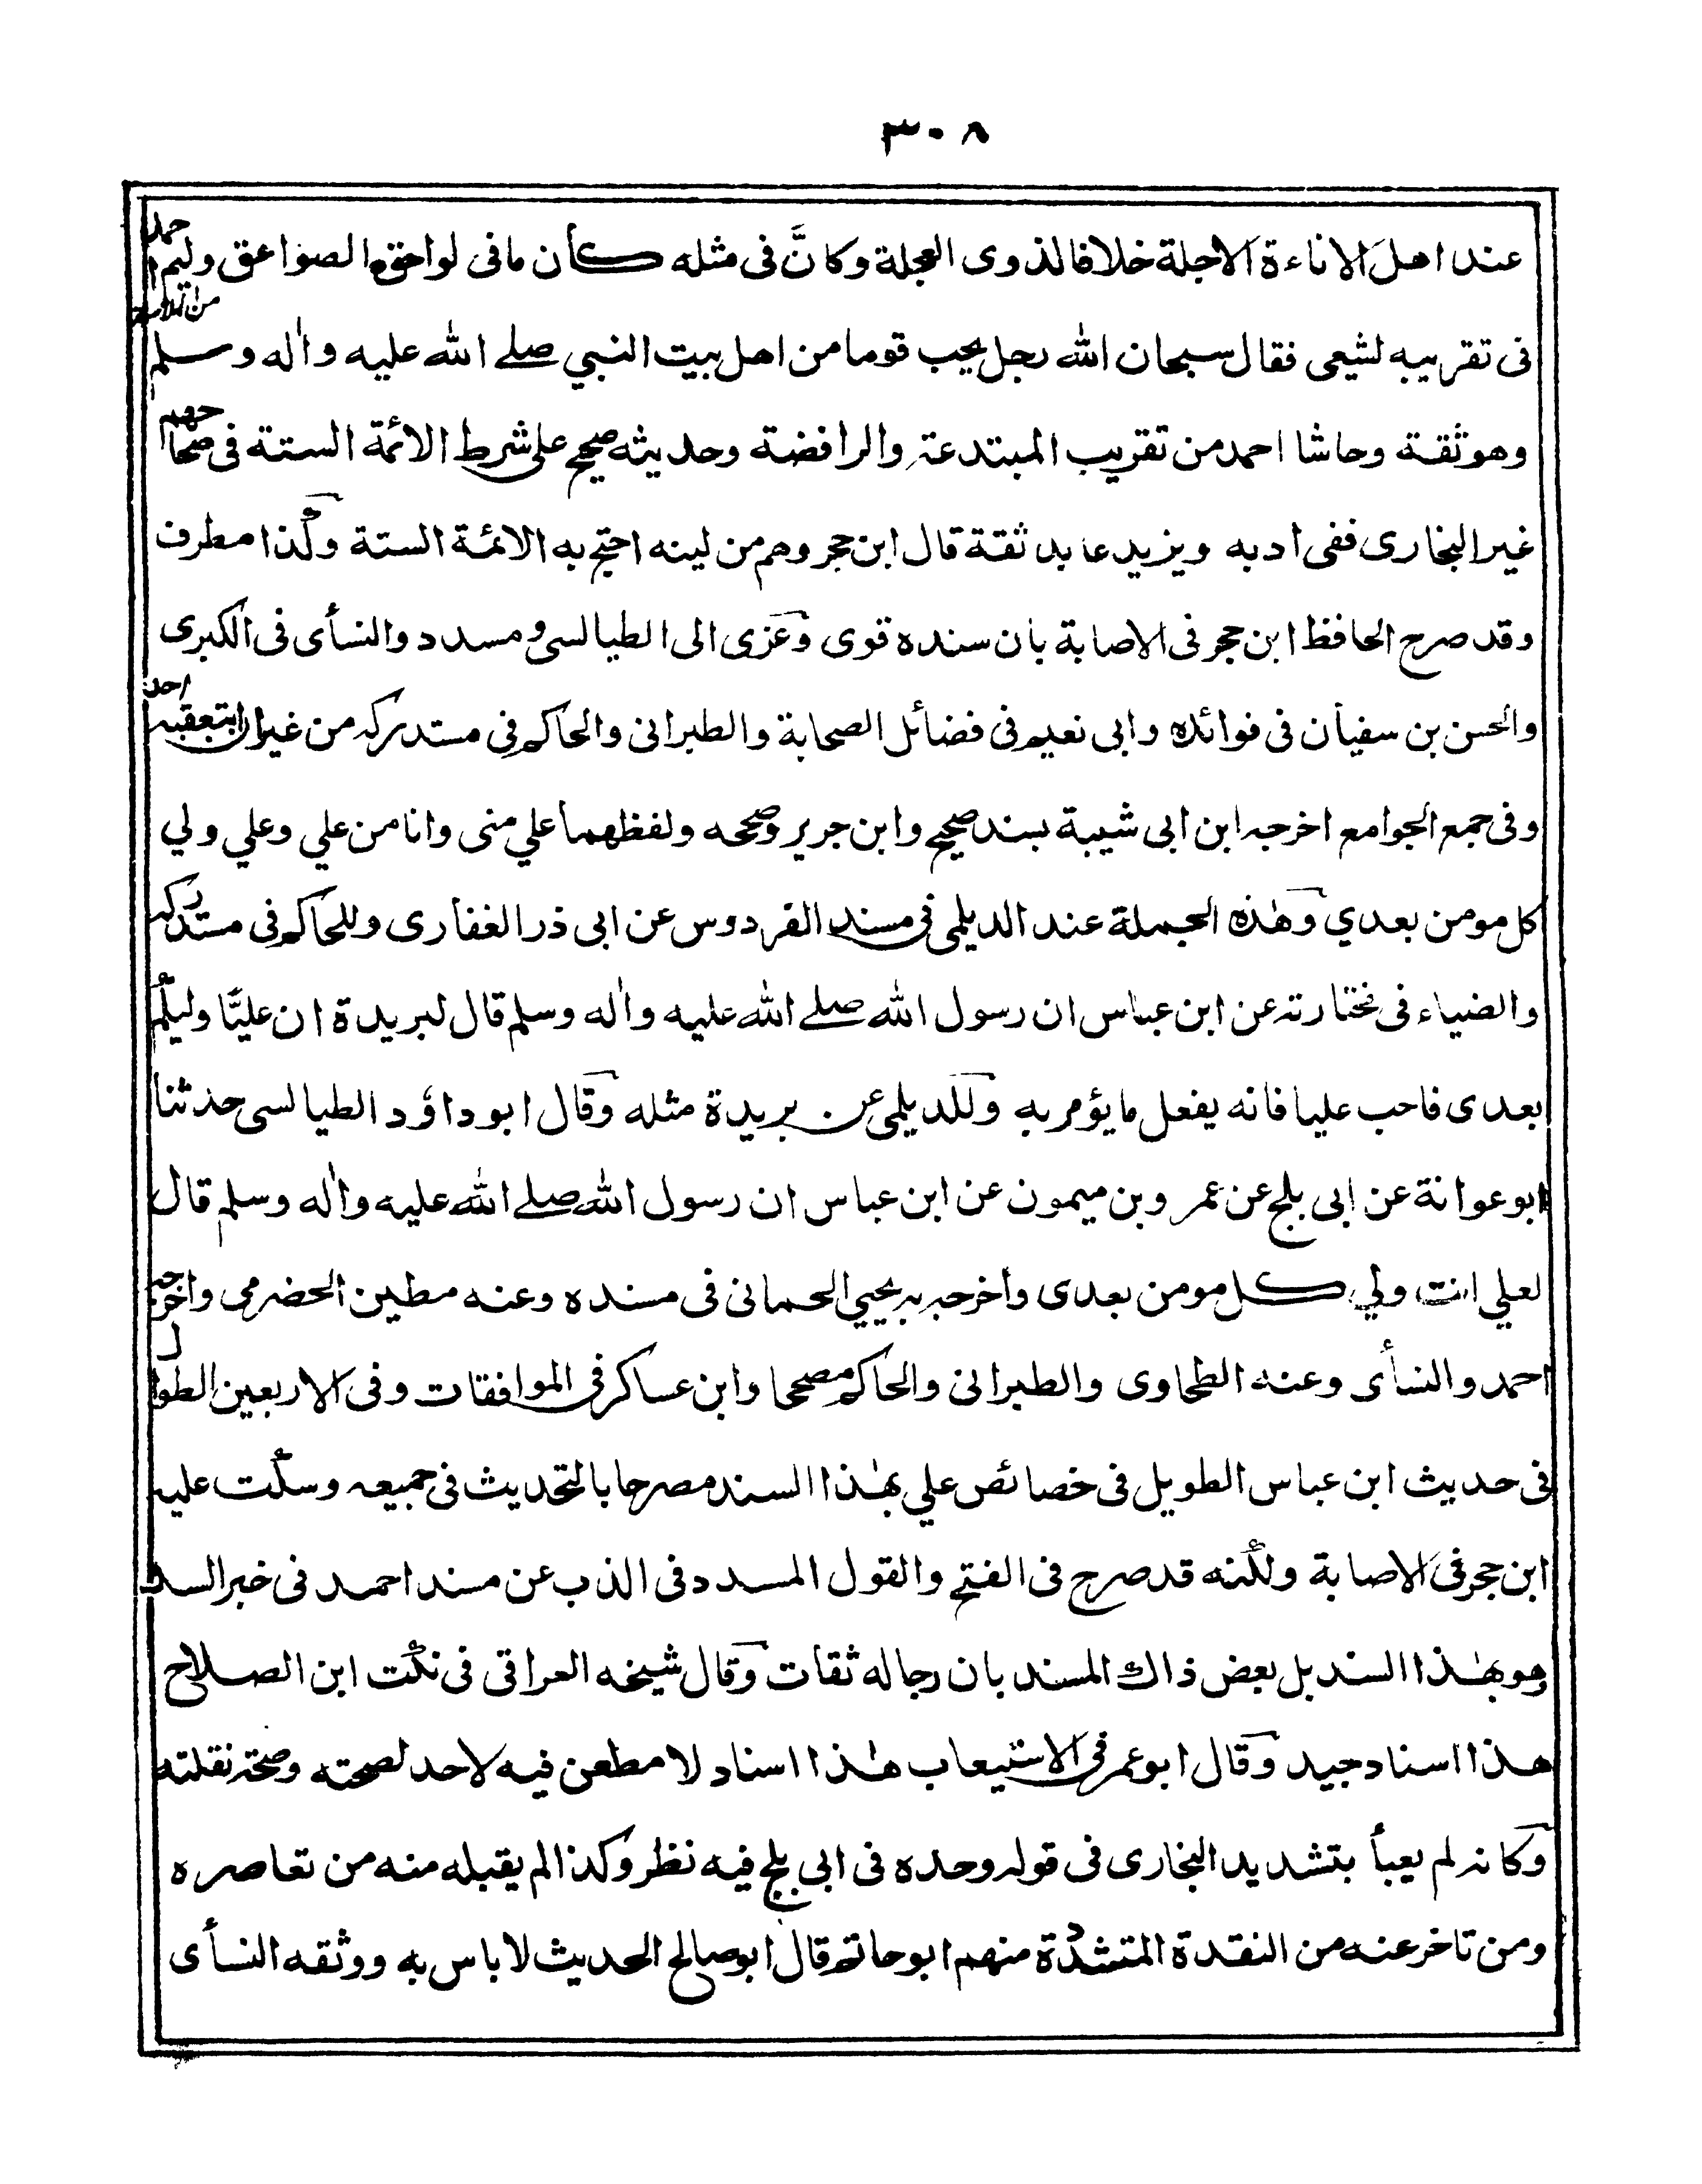 ٣٠٨
عند اهل الاناءة الاجلة خلافا لذوى العجلة وكانَّ فى مثله كأن مافى لواحق الصواعق وليم احمد
فى تقريبه لشيعى فقال سبحان الله رجل يحب قوما من اهل بيت النبي صلے الله عليه واٰله وسلم
وهو ثقة وحاشا احمد من تقريب المبتدعة والرافضة وحديثه صحيح على شرط الائمة الستة فى صحاحهم
غير البخارى ففى ادبه ويزيد عابد ثقة قال ابن حجر وهم من لينه احتج به الائمة الستة وكذا مطرف
وقد صرح الحافظ ابن حجر فى الاصابة بان سنده قوى وعزى الى الطيالسى ومسدد والنسأى فى الكبرى
والحسن بن سفيأن فى فوائده وابى نعيم فى فضائل الصحابة والطبرانى والحاكم فى مستدركه من غير ان يتعقبه احد
وفى جمع الجوامع اخرجه ابن ابى شيبة بسند صحيح وابن جرير وصححه ولفظهما علي منى وانا من علي وعلي ولي
كل مومن بعدي وهٰذه الجملة عند الديلمى فى مسند الفردوس عن ابى ذر الغفارى وللحاكم فى مستدركه
والضياء فى مختارته عن ابن عباس ان رسول الله صلے الله عليه واٰله وسلم قال لبريدة ان عليًّا وليكم
بعدى فاحب عليا فانه يفعل ما يؤمر به وللديلمى عن بريدة مثله وقال ابو داؤد الطيالسى حدثنا
ابو عوانة عن ابى بلج عن عمرو بن ميمون عن ابن عباس ان رسول الله صلے الله عليه واٰله وسلم قال
لعلي انت ولي كل مومن بعدى وأخرجه به يحيي الحمانى فى مسنده وعنه مطين الحضرمى واخرجه
احمد والنسأى وعنه الطحاوى والطبرانى والحاكم مصححا وابن عساكر فى الموافقات وفى الاربعين الطوال
فى حديث ابن عباس الطويل فى خصائص علي بهٰذا السند مصرحا بالتحديث فى جميعه وسكت عليه
ابن حجر فى الاصابة ولكنه قد صرح فى الفتح والقول المسدد فى الذب عن مسند احمد فى خبر السد
وهو بهٰذا السند بل بعض ذاك المسند بان رجاله ثقات وقال شيخه العراقى فى نكت ابن الصلاح
هذا اسناد جيد وقال ابو عمر فى الاستيعاب هٰذا اسناد لا مطعن فيه لاحد لصحته وصحة نقلته
وكانه لم يعبأ بتشديد البخارى فى قوله وحده فى ابى بلج فيه نظر وكذا لم يقبله منه من تعاصره
ومن تاخر عنه من النقدة المتشددة منهم ابو حاتم قال ابو صالح الحديث لا باس به ووثقه النسأى